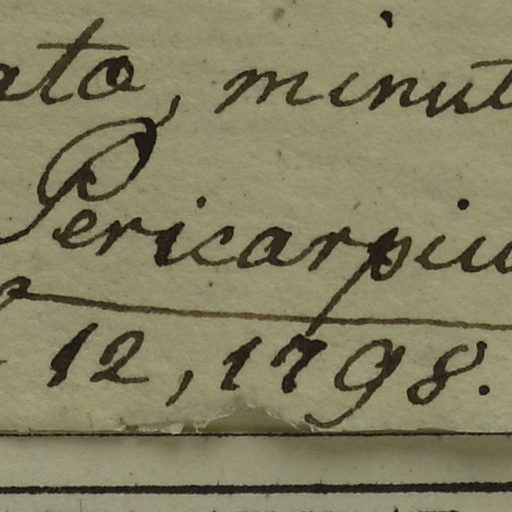 ato, minut
Pericarpiu
12, 1798.